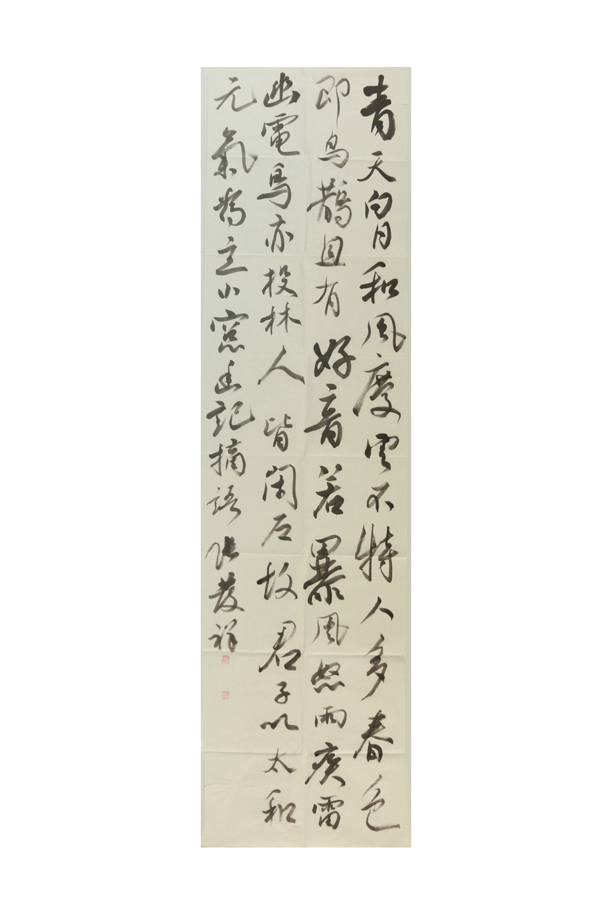 青天白日和風慶雲不特人多春色
即鳥鵲且有好音若暴風怒雨疾雷
幽電鳥亦投林人皆閉户故君子以太和
元氣為主小窓幽記摘語張發祥